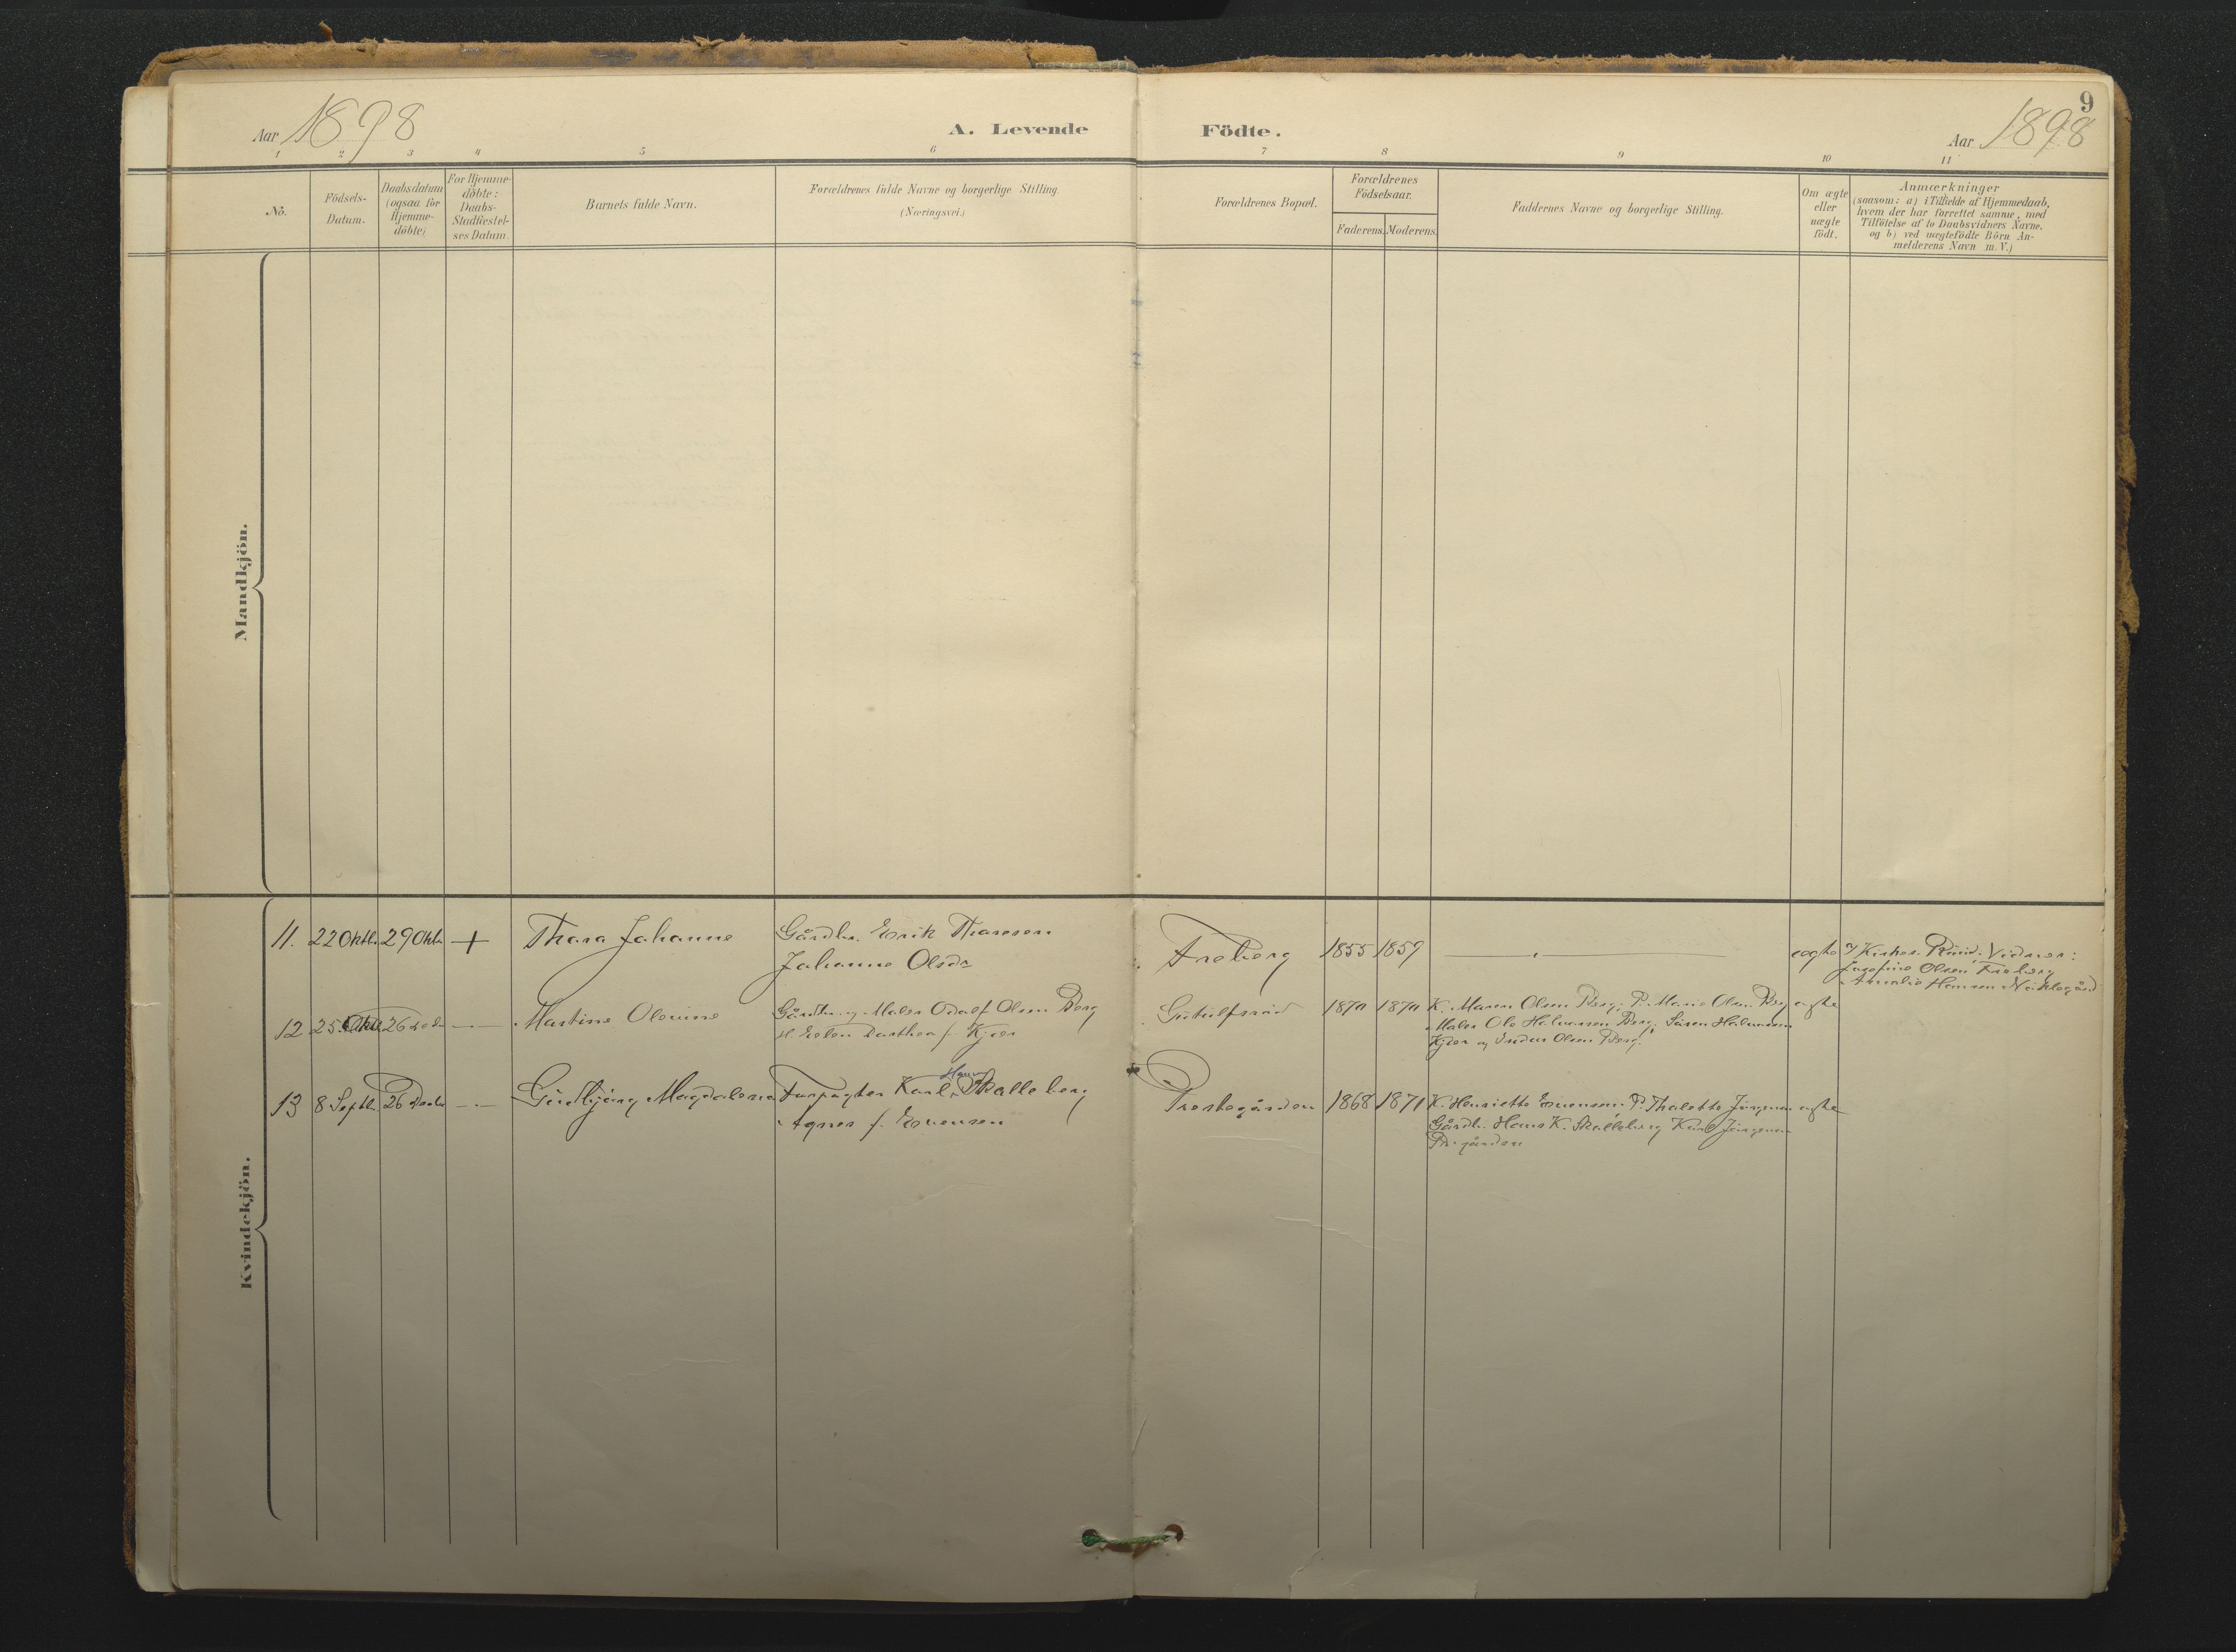 Aar 1898
A. Levende Födte.
9
Aar 1898
1 2 3 4 5 6 7 8 9 10 11
No.
Födsels-
Datum.
Daabsdatum
(ogsaa for
Hjemme-
döbte)
For Hjemme-
döbte:
Daabs-
Stadfæstel-
ses Datum.
Barnets fulde Navn.
Forældrenes fulde Navne og borgerlige Stilling.
(Næringsvei.)
Forældrenes Bopæl.
Forældrenes
Födselsaar.
Faderens. Moderens.
Faddernes Navne og borgerlige Stilling.
Om ægte
eller
uægte
födt.
Anmærkninger
(saasom: a) i Tilfælde af Hjemmedaab,
hvem der har forrettet samme, med
Tilföielse af to Daabsvidners Navne.
og b) ved uægtefödte Börn An-
melderens Navn m. V.)
Mandkjön.
Kvindekjön.
11. 22 Oktbr 29 Oktbr + Thora Johanne
Gårdbr. Erik Thoresen
Johanne Olsdr
Freberg 1855 1857
ægte
Kirkes. Ruud. Vidner:
Josefine Olsen, Freberg
Amalie Hansen
12 25 Oktbr 26 Decbr
Martine Olevine
Gårdbr. og Maler Odolf Olsen Berg
H. Elen Dorthea f. Kjær
1870 1870
K. Maren Olsen Berg; P. Marie Olsen Berg
ægte
Maler Ole Halvorsen Berg; Sören Halvorsen
Kjær og Olsen Berg.
13 8 Septbr 26 Decbr
Gudbjørg Magdalena
Forpagter Karl Hansen Skalleberg
Agnes f. Evensen
Prestegården 1868 1871
K. Henriette Evensen. P. Thalette Jörgensen
ægte
Gårdb. Hans K. Skalleberg Karl Jörgensen
Pr.gården